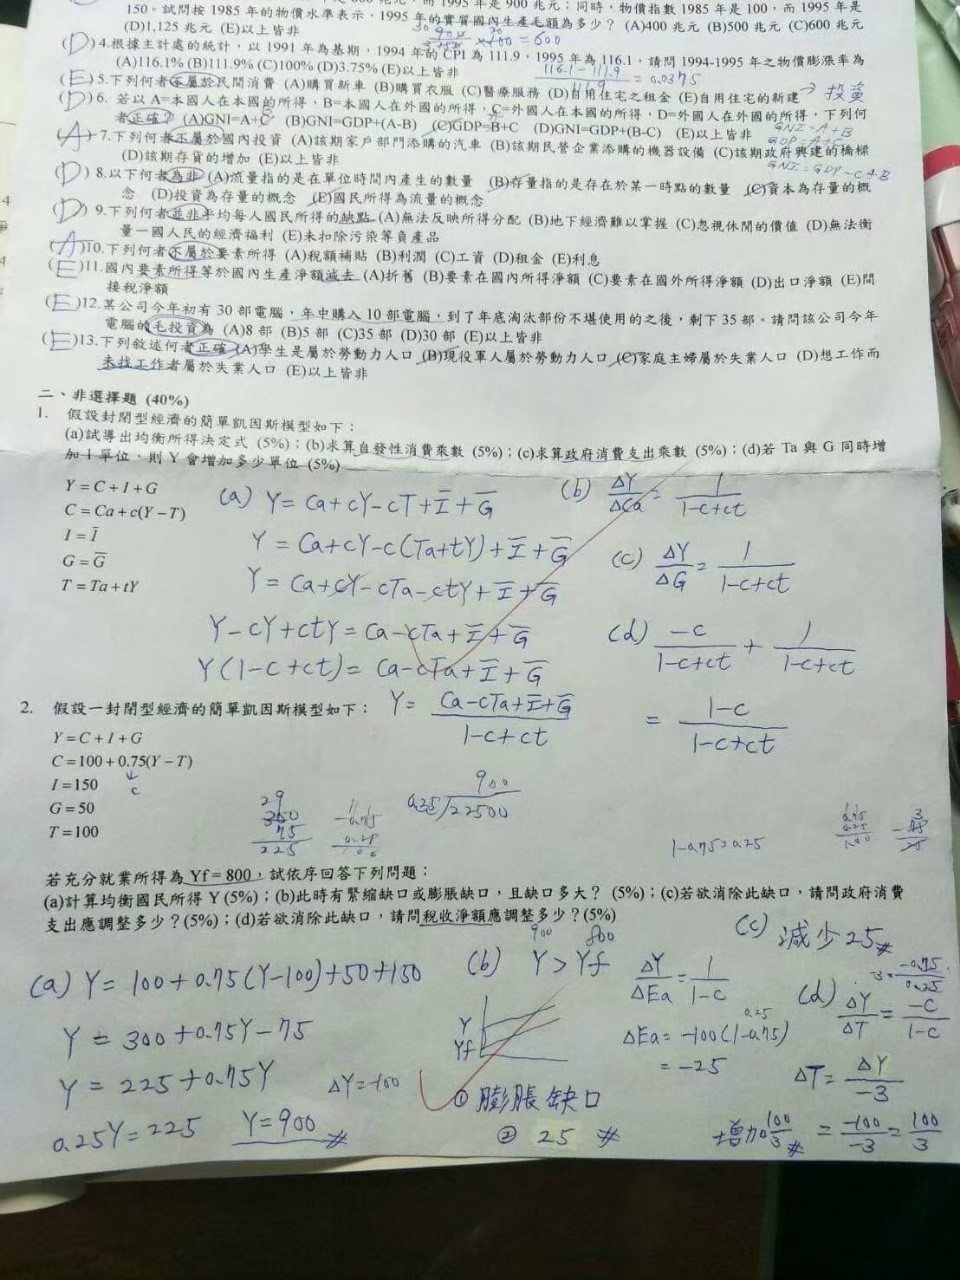 150。試問按 1985 年的物價水準表示,1995 年的實質國內生產毛額為多少? (A)400 兆元 (B)500 兆元 (C)600 兆元
(D)1,125 兆元 (E)以上皆非
×100 = 600
(D) 4.根據主計處的統計,以 1991 年為基期,1994 年的 CPI 為 111.9,1995 年為 116.1,請問 1994-1995 年之物價膨漲率為
(A)116.1% (B)111.9% (C)100% (D)3.75% (E)以上皆非
116.1-111.9 / 111.9 = 0.0375
(E) 5.下列何者不屬於民間消費 (A)購買新車 (B)購買衣服 (C)醫療服務 (D)自用住宅之租金 (E)自用住宅的新建 → 投資
(D) 6. 若以 A=本國人在本國的所得,B=本國人在外國的所得,C=外國人在本國的所得,D=外國人在外國的所得,下列何
者正確? (A)GNI=A+C (B)GNI=GDP+(A-B) (C)GDP=B+C (D)GNI=GDP+(B-C) (E)以上皆非
GNI=A+B
GDP=A+C
GNI=GDP-C+B
(A) 7.下列何者不屬於國內投資 (A)該期家戶部門添購的汽車 (B)該期民營企業添購的機器設備 (C)該期政府興建的橋樑
(D)該期存貨的增加 (E)以上皆非
(D) 8.以下何者為非 (A)流量指的是在單位時間內產生的數量 (B)存量指的是存在於某一時點的數量 (C)資本為存量的概
念 (D)投資為存量的概念 (E)國民所得為流量的概念
(D) 9.下列何者並非平均每人國民所得的缺點 (A)無法反映所得分配 (B)地下經濟難以掌握 (C)忽視休閒的價值 (D)無法衡
量一國人民的經濟福利 (E)未扣除污染等負產品
(A)10.下列何者不屬於要素所得 (A)稅額補貼 (B)利潤 (C)工資 (D)租金 (E)利息
(E)11.國內要素所得等於國內生產淨額減去 (A)折舊 (B)要素在國內所得淨額 (C)要素在國外所得淨額 (D)出口淨額 (E)間
接稅淨額
(E)12.某公司今年初有 30 部電腦,年中購入 10 部電腦,到了年底淘汰部份不堪使用的之後,剩下 35 部。請問該公司今年
電腦的毛投資為 (A)8 部 (B)5 部 (C)35 部 (D)30 部 (E)以上皆非
(E)13.下列敘述何者正確 (A)學生是屬於勞動力人口 (B)現役軍人屬於勞動力人口 (C)家庭主婦屬於失業人口 (D)想工作而
未找工作者屬於失業人口 (E)以上皆非
二、非選擇題 (40%)
1. 假設封閉型經濟的簡單凱因斯模型如下:
(a)試導出均衡所得決定式 (5%);(b)求算自發性消費乘數 (5%);(c)求算政府消費支出乘數 (5%);(d)若 Ta 與 G 同時增
加 1 單位,則 Y 會增加多少單位 (5%)
Y = C + I + G
C = Ca + c(Y − T)
I = Ī
G = G̅
T = Ta + tY
(a) Y = Ca+cY-cT+Ī+G̅
Y = Ca+cY-c(Ta+tY)+Ī+G̅
Y = Ca+cY-cTa-ctY+Ī+G̅
Y-cY+ctY = Ca-cTa+Ī+G̅
Y(1-c+ct) = Ca-cTa+Ī+G̅
Y = Ca-cTa+Ī+G̅ / 1-c+ct
(b) ΔY/ΔCa = 1/1-c+ct
(c) ΔY/ΔG = 1/1-c+ct
(d) -c/1-c+ct + 1/1-c+ct
= 1-c/1-c+ct
2. 假設一封閉型經濟的簡單凱因斯模型如下:
Y = C + I + G
C = 100 + 0.75(Y − T)
c
I = 150
G = 50
T = 100
300
75
225
900
0.25/22500
1-0.75=0.25
若充分就業所得為 Yf = 800,試依序回答下列問題:
(a)計算均衡國民所得 Y (5%);(b)此時有緊縮缺口或膨脹缺口,且缺口多大? (5%);(c)若欲消除此缺口,請問政府消費
支出應調整多少?(5%);(d)若欲消除此缺口,請問稅收淨額應調整多少?(5%)
(a) Y = 100+0.75(Y-100)+50+150
Y = 300+0.75Y-75
Y = 225+0.75Y
0.25Y=225 Y=900 #
ΔY=-100
(b) 900 800
Y > Yf
Y
Yf
① 膨脹缺口
② 25 #
ΔY/ΔEa = 1/1-c
0.25
ΔEa = -100(1-0.75)
= -25
(c) 減少25 #
(d) ΔY/ΔT = -c/1-c
-3 = -0.75/0.25
ΔT = ΔY/-3
= -100/-3 = 100/3
增加100/3 #